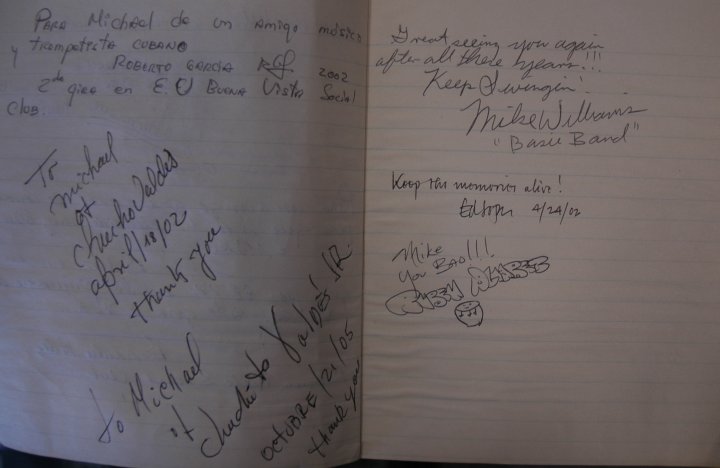 PARA Michael de un amigo músico
y trompetista cubano
Roberto Garcia 2002
2da gira en E.U Buena Vista Social
Club.
To
michael
of
chucho valdés
april/18/02
thank you
to Michael
of
chuchito Valdés JR.
OCTUBRE/21/05
thank you
Great seeing you again
after all these years!!!
Keep Swingin'!
Mike Williams
"Basie Band"
Keep the memories alive!
4/24/02
Mike
you BAD!!!